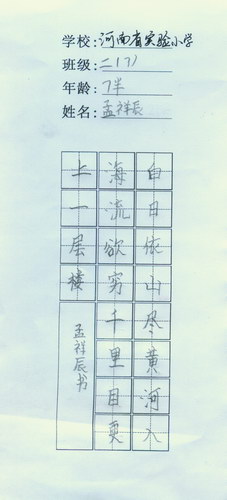 学校:河南省实验小学
班级:二(7)
年龄:7半
姓名:孟祥辰
白日依山尽黄河入
海流欲穷千里目更
上一层楼
孟祥辰书